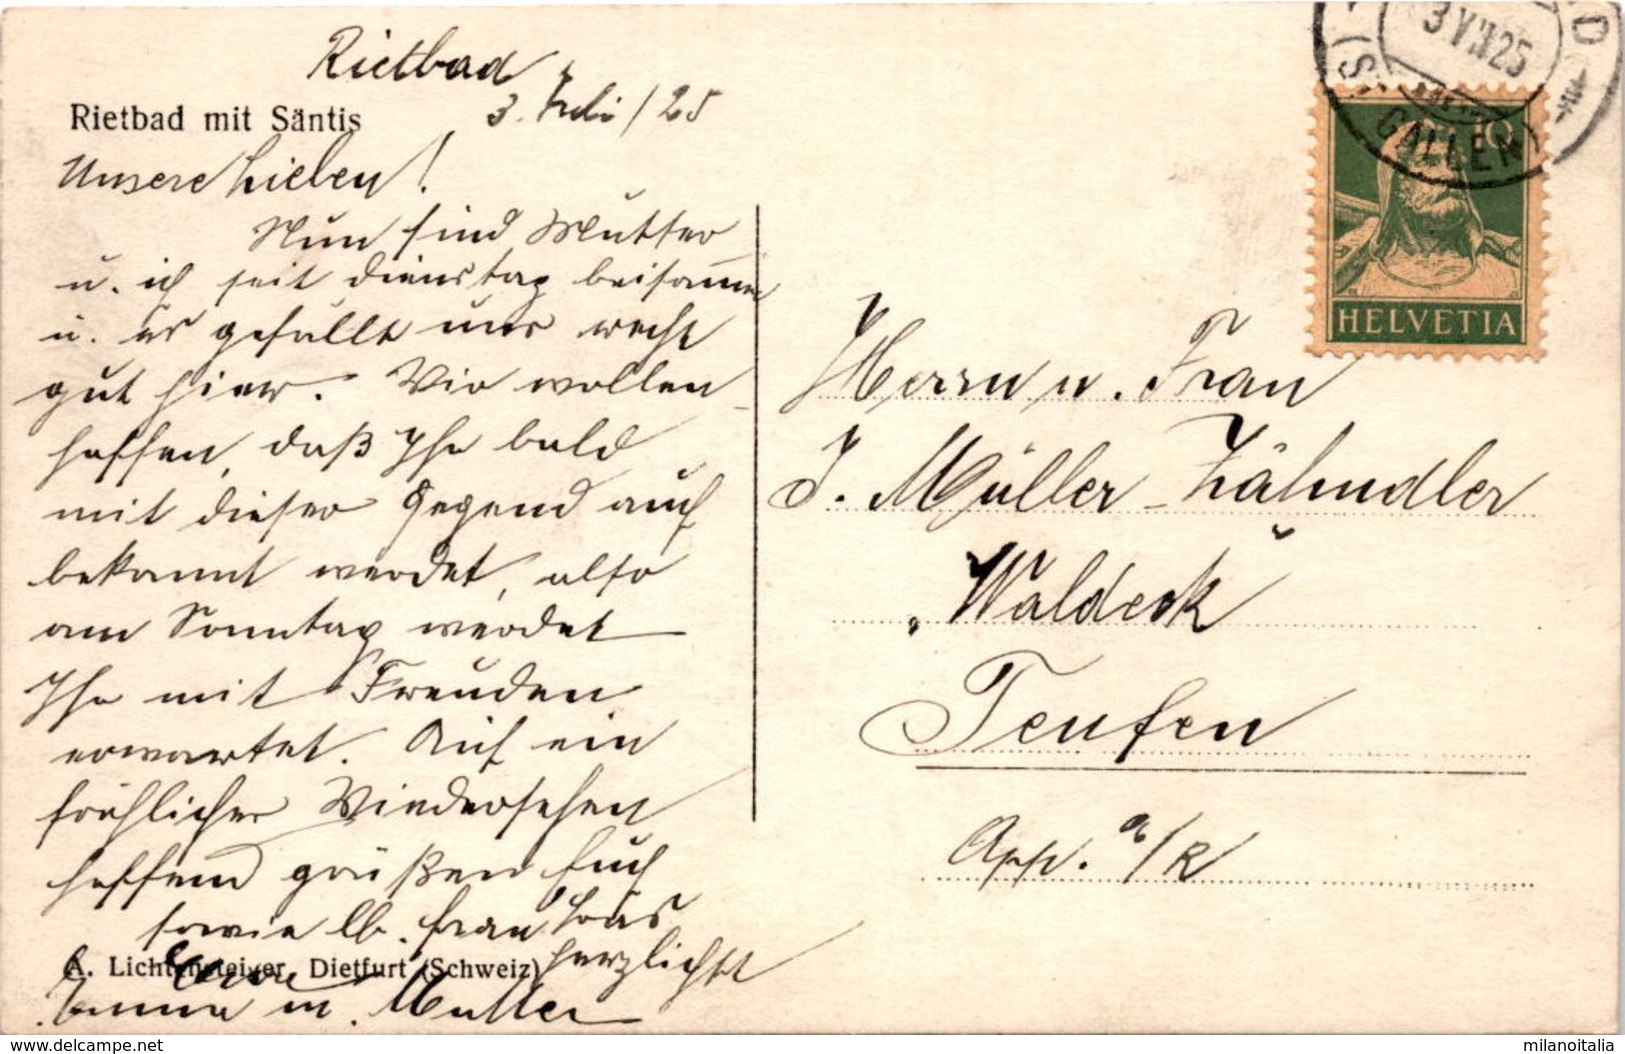 Rietbad
3. Juli / 25
Rietbad mit Säntis
Unsere Lieben!
Nun sind Mutter
u. ich seit Dienstag beisamen
u. es gefällt uns recht
gut hier. Wir wollen
hoffen, daß Ihr bald
mit dieser Gegend auch
bekannt werdet, also
am Sonntag werdet
Ihr mit Freuden
erwartet. Auf ein
fröhliches Wiedersehen
hoffend grüßen Euch
sowie lb. Frau
herzlichst
A. Lichtensteiger, Dietfurt (Schweiz)
Emma u. Mutter
3 VII 25
GALLEN
10
HELVETIA
Herrn u. Frau
J. Müller-Zähndler
"Waldeck"
Teufen
App. a/R
delcampe.net
milanoitalia